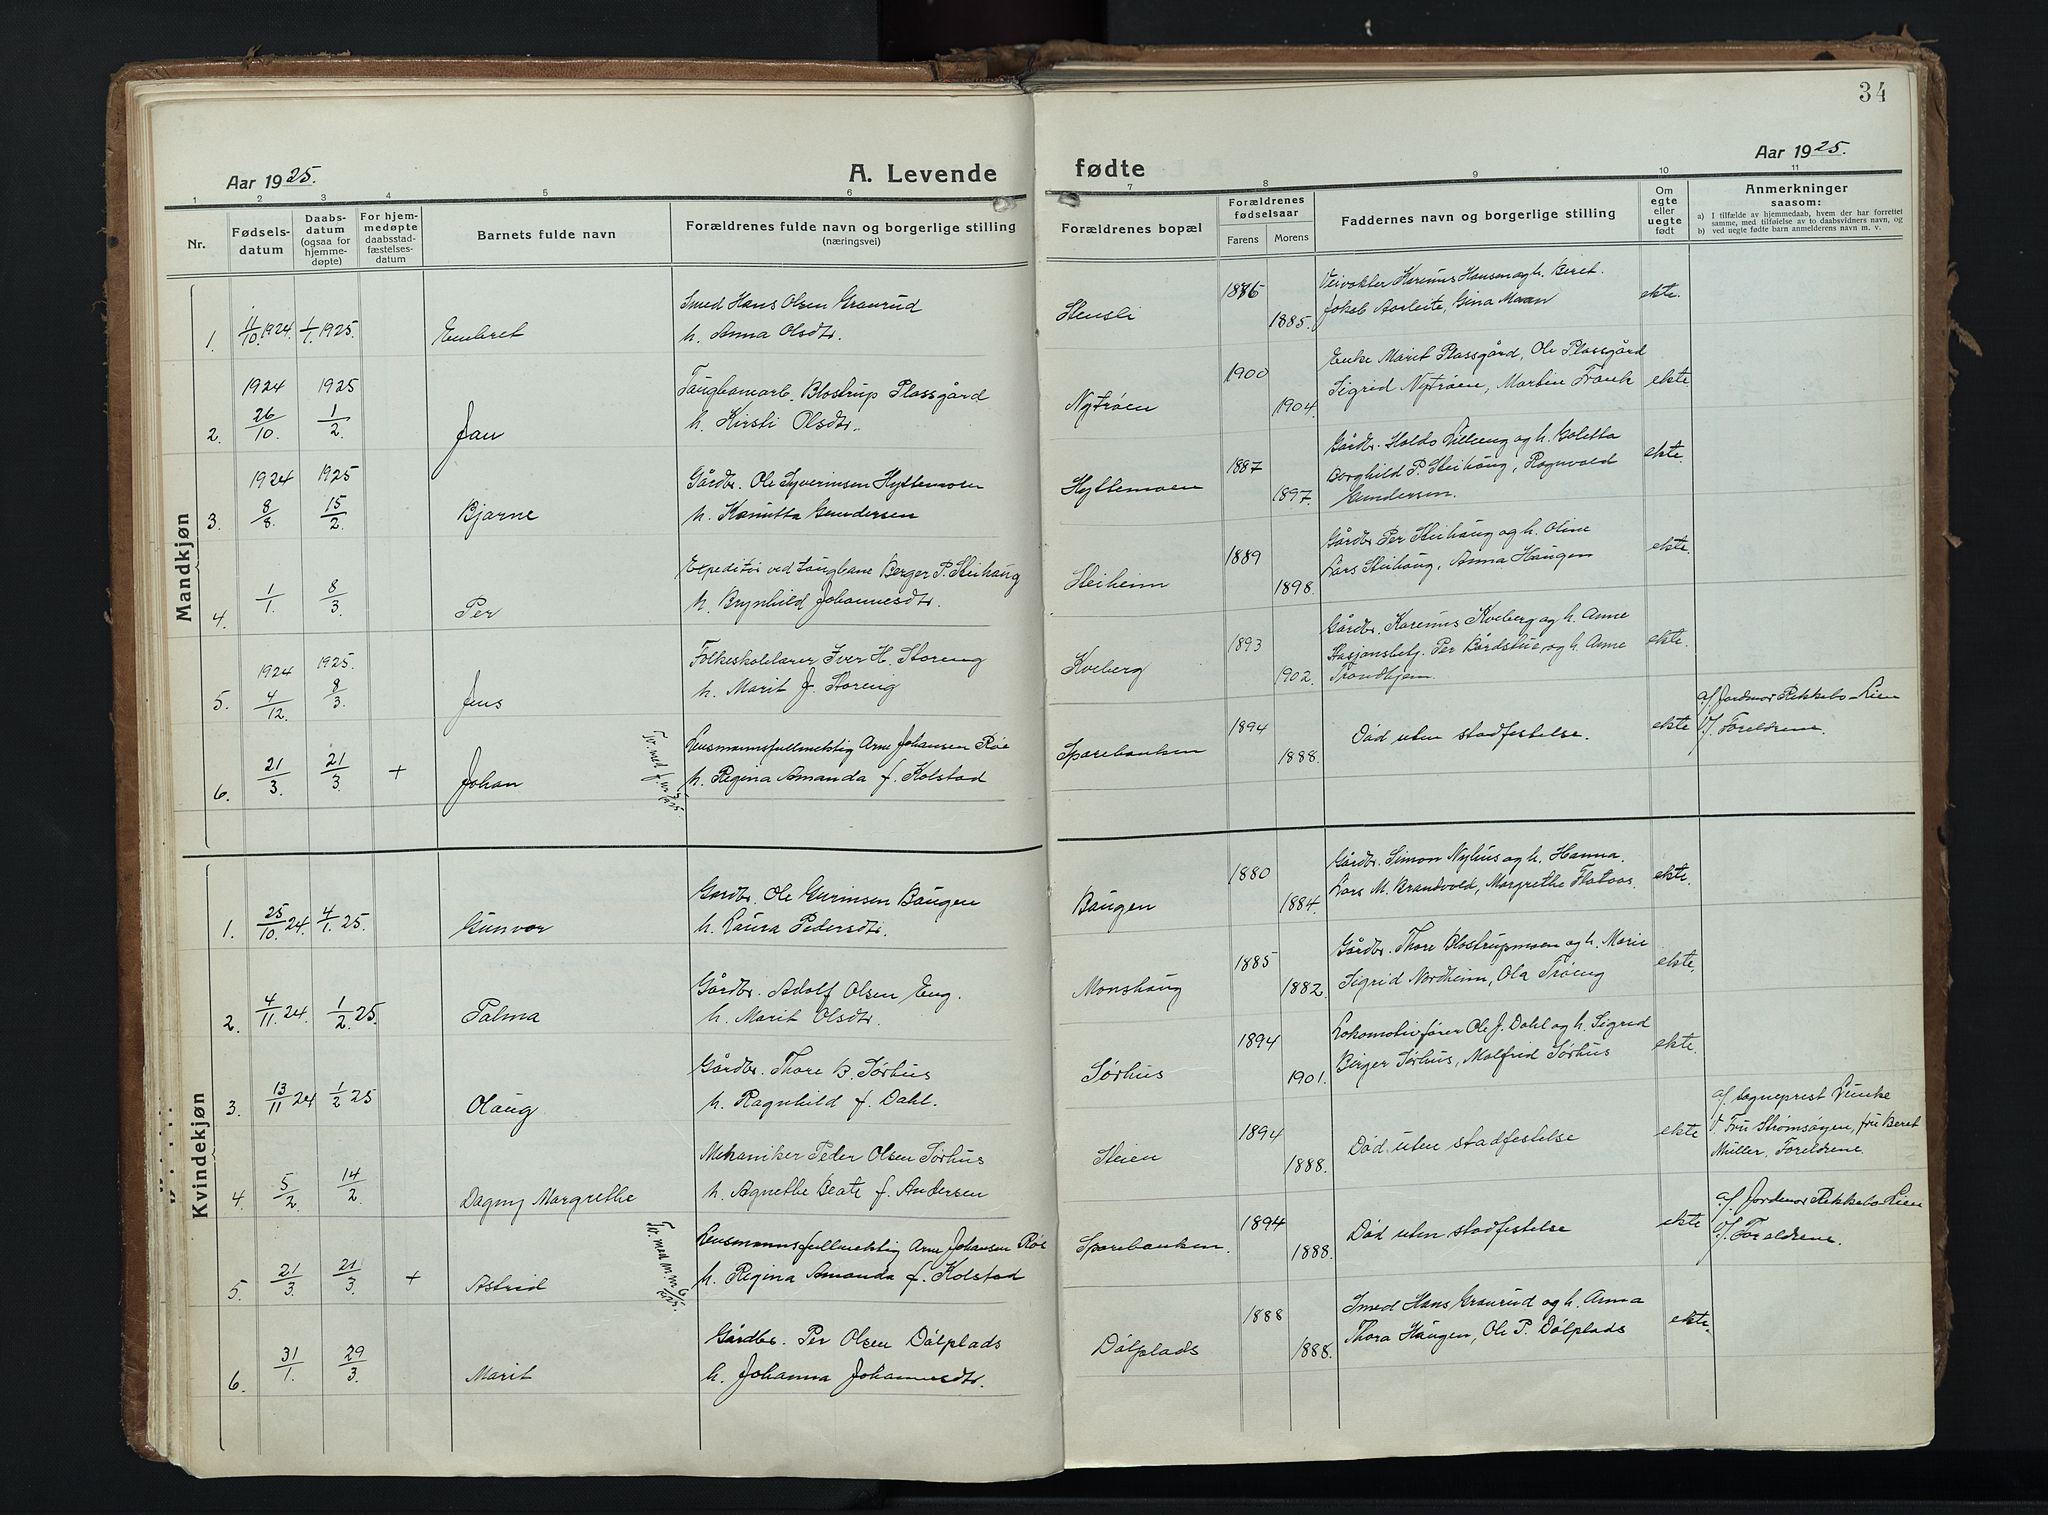 34
Aar 1925.
A. Levende
fødte
Aar 1925.
1 2 3 4 5 6 7 8 9 10 11
Nr.
Fødsels-
datum
Daabs-
datum
(ogsaa for
hjemme-
døpte)
For hjem-
medøpte
daabsstad-
fæstelses-
datum
Barnets fulde navn
Forældrenes fulde navn og borgerlige stilling
(næringsvei)
Forældrenes bopæl
Forældrenes
fødselsaar
Farens
Morens
Faddernes navn og borgerlige stilling
Om
egte
eller
uegte
født
Anmerkninger
saasom:
a) I tilfælde av hjemmedaab, hvem der har forrettet
samme, med tilføielse av to daabsvidners navn, og
b) ved uegte fødte barn anmelderens navn m. v.
Mandkjøn
1. 11/10 1924. 1/1 1925. Embret
Smed Hans Olsen Graurud
h. Anna Olsdtr.
Stensli 1876 1885.
Veivokter Karenus Hansen og h. Beret.
Jakob Aarleite, Gina Moan
ekte.
2. 1924 26/10. 1925 1/2. Jan
Taugbanearb. Blostrup Plassgård
h. Kirsti Olsdtr.
Nytrøen 1900 1904.
Enke Marit Plassgård, Ole Plassgård
Sigrid Nytrøen, Martin Frank
ekte
3. 1924 8/8. 1925 15/2. Bjarne
Gårdbr. Ole Syverinsen Hyttemoen
h. Kanutta Gundersen
Hyttemoen 1887 1897.
Gårdbr. Haldo Lilleeng og h. Boletta
Borghild P. Steihaug, Ragnvald
Gundersen.
ekte.
4. 1/1. 8/3. Per
Expeditør ved taugbane Berger P. Steihaug
h. Brynhild Johannesdtr.
Steiheim 1889 1898.
Gårdbr. Per Steihaug og h. Oline
Lars Steihaug, Anna Haugen
ekte.
5. 1924 4/12. 1925. 8/3. Jens
Folkeskolelærer Iver H. Storeng
h. Marit J. Storeng
Kveberg 1893 1902.
Gårdbr. Karenus Kveberg og h. Anne
Stasjonsbetj. Per Bårdstue og h. Anne
Trondhjem.
ekte.
6. 21/3. 21/3. + Johan
Tv. med
Lensmannsfullmektig Arne Johansen Røe
h. Regina Amanda f. Kolstad
Sparebanken 1894 1888.
Død uten stadfestelse.
ekte
af Jordmor Rikkebo-Lien
V. Foreldrene.
Kvindekjøn
1. 25/10 24. 4/1. 25. Gunvor
Gardbr. Ole Gurinsen Baugen
h. Laura Pedersdtr.
Baugen 1880 1884.
Gårdbr. Simon Nyhus og h. Hanna.
Lars M. Brandvold, Margrethe Flataas.
ekte.
2. 4/11 24. 1/2 25. Palma
Gårdbr. Adolf Olsen Eng.
h. Marit Olsdtr.
Monshaug 1885 1882.
Gårdbr. Thore Blostrupmoen og h. Marie
Sigrid Nordheim, Ola Trøeng
ekte.
3. 13/11 24 1/2 25 Olaug
Gårdbr. Thore B. Sørhus
h. Ragnhild f. Dahl.
Sørhus 1894 1901.
Lokomotivfører Ole J. Dahl og h. Sigrid
Birger Sørhus, Malfrid Sørhus
ekte.
4. 5/2 14/2 Dagny Margrethe
Mekaniker Peder Olsen Sørhus
h. Agnethe Beate f. Andersen
Steien 1894 1888.
Død uten stadfestelse
ekte
af sogneprest Lunke
V. Fru Strømsøyen, fru Beret
Müller, Foreldrene.
5. 21/3. 21/3. + Astrid
Tv. med m. nr 6/1925.
Lensmannsfullmektig Arne Johansen Røe
h. Regina Amanda f. Kolstad
Sparebanken. 1894 1888.
Død uten stadfestelse
ekte
af Jordmor Rikkebo-Lien
V. Foreldrene.
6. 31/1. 29/3. Marit
Gårdbr. Per Olsen Dølplads
h. Johanna Johannesdtr.
Dølplads 1888 1888.
Smed Hans Graurud og h. Anna
Thora Haugen, Ole P. Dølplads
ekte.